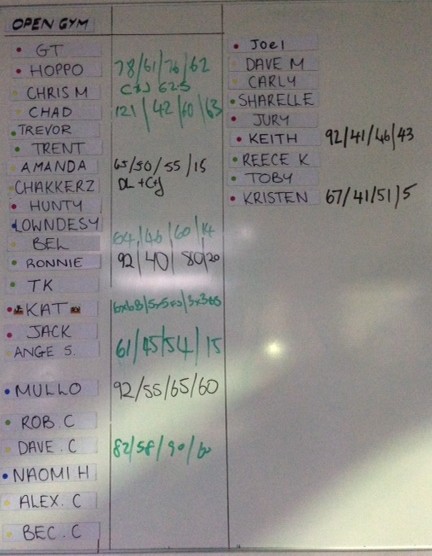 OPEN GYM
GT
HOPPO 78/61/76/62
CHRIS M C+J 62.5
CHAD 121/42/60/63
TREVOR
TRENT
AMANDA 65/50/55/15
CHAKKERZ DL + CJ
HUNTY
LOWNDESY
BEL 64/46/60/14
RONNIE 92/40/80/20
TK
KAT
JACK
ANGE S. 61/45/54/15
MULLO 92/55/65/60
ROB. C
DAVE. C 82/58/90/60
NAOMI H
ALEX. C
BEC. C
Joel
DAVE M
CARLY
SHARELLE
JURY
KEITH 92/41/46/43
REECE K
TOBY
KRISTEN 67/41/51/5